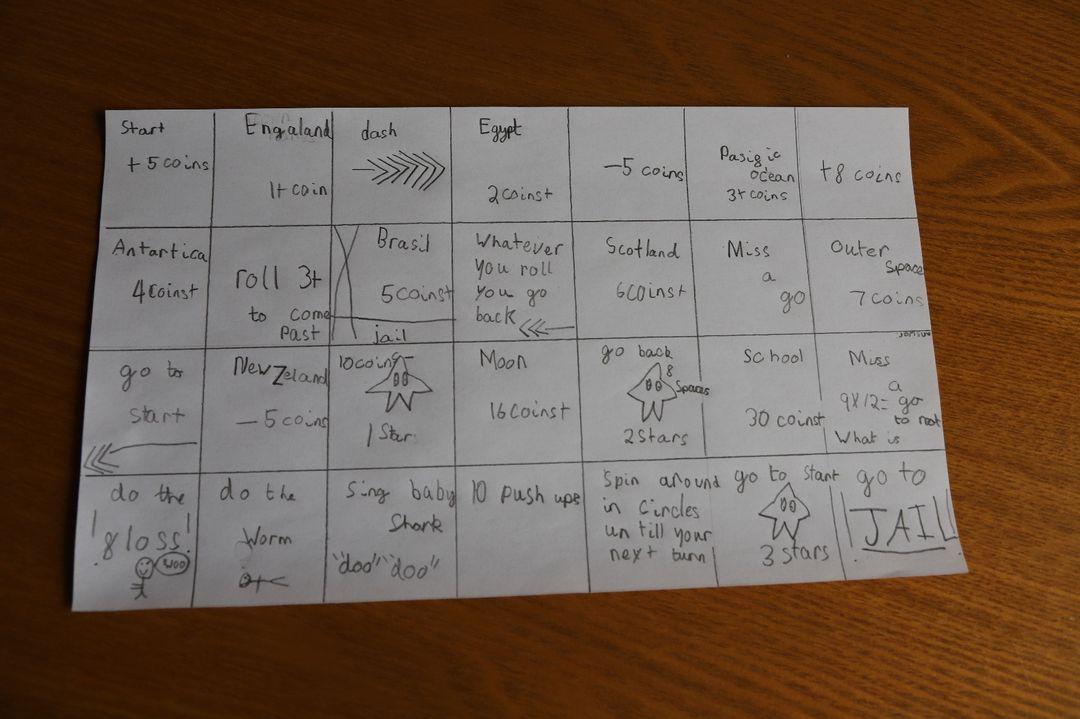 Start
+5 coins
Engaland
1+ coin
dash
Egypt
2coins+
-5 coins
Pasigic
ocean
3+ coins
+8 coins
Antartica
4Coins+
roll 3+
to come
Past
Brasil
5coins+
jail
Whatever
you roll
you go
back
Scotland
6Coins+
Miss
a
go
Outer
Space
7 coins
go to
start
New Zeland
-5 coins
10coins
1 Star
Moon
16coins+
go back
8
Spaces
2stars
School
30 coins+
Miss
a
go
to not
9x12=
What is
do the
gloss!
woo
do the
Worm
Sing baby
Shark
"doo" "doo"
10 push ups
Spin around
in Circles
un till your
next turn
go to Start
3 stars
go to
JAIL